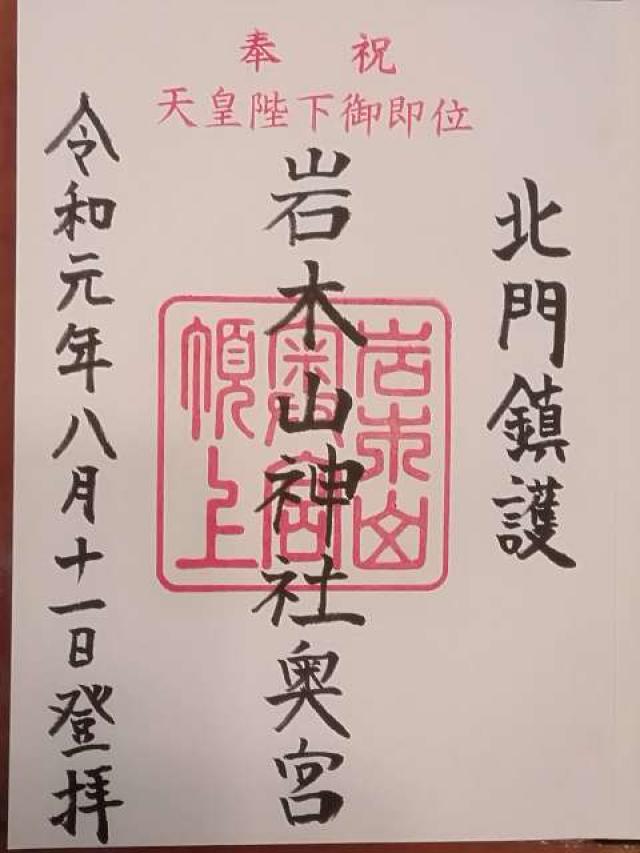 奉祝
天皇陛下御即位
北門鎮護
岩木山神社奥宮
令和元年八月十一日登拝
岩木山
奥宮
頂上